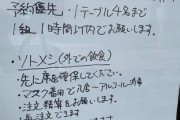 予約優先・1テーブル4名まで
1組1時間以内でお願いします。
・ソトメシ(外での飲食)
・先に席を確保してください。
・マスク着用で入店〜アルコール消毒
・注文精算をお願いします。